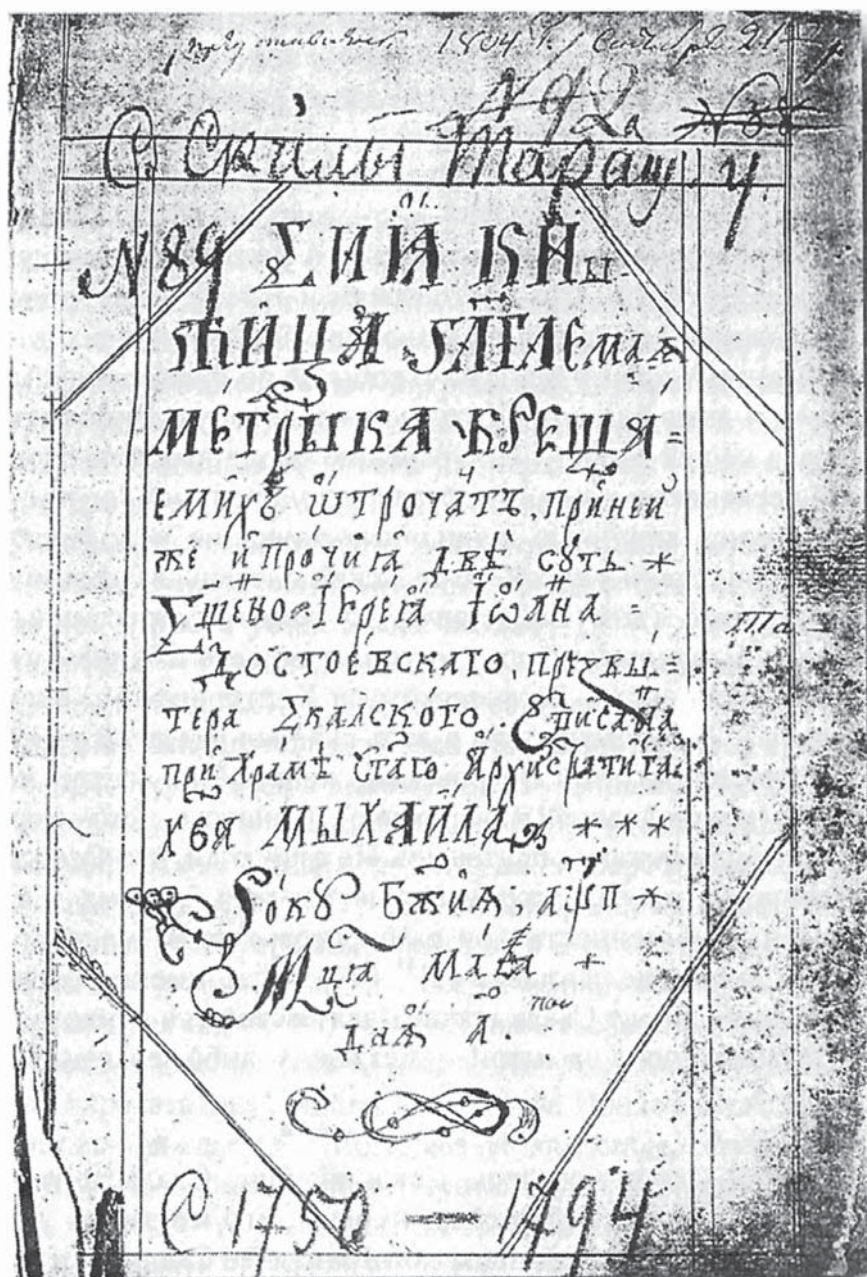 1804 г. Сентября 21
№ 92 № 88
С. Скалы Таращ. у.
№ 89 СИІѦ КНЫ
ЖИЦѦ ГАГЛЕМАѦ
МЕТРЫКА КРЕЩѦ=
ЕМИХЪ ѾТРОЧАТЪ ПРИ НЕЙ
ЖЕ И ПРОЧИІА ДВѢ СУТЬ *
СЩЕНОІЕРЕІА ІѠАНА =
ДОСТОЕВСКАГО, ПРЕЗВЫ
ТЕРА СКАЛСКОГО, ꙊПИСАНА
ПРИ ХРАМѢ СТАГО АРХИСРАТИГА
ХВА МЫХАИЛА * * *
РОКꙊ БЖИѦ АѰП *
МЦІА МАІА
ДНѦ А
1750 — 1794